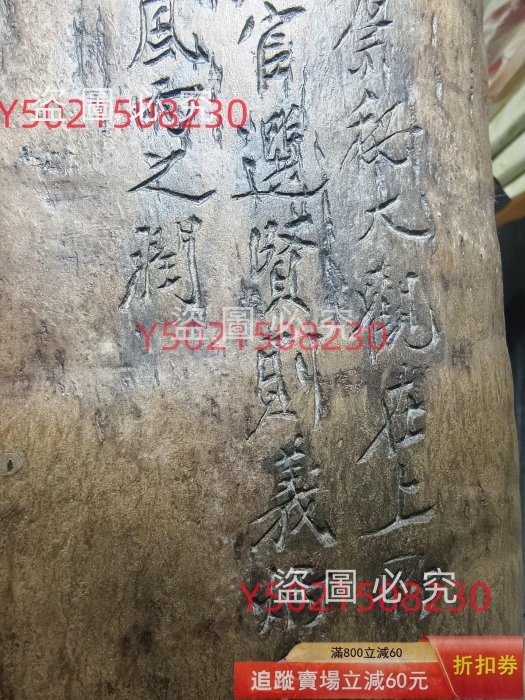 祭秘大觀在上
官選賢則義
風之潤
盜圖必究
Y5021508230
盜圖必究
Y5021508230
盜圖必究
Y5021508230
滿800立減60
追蹤賣場立減60元
折扣券